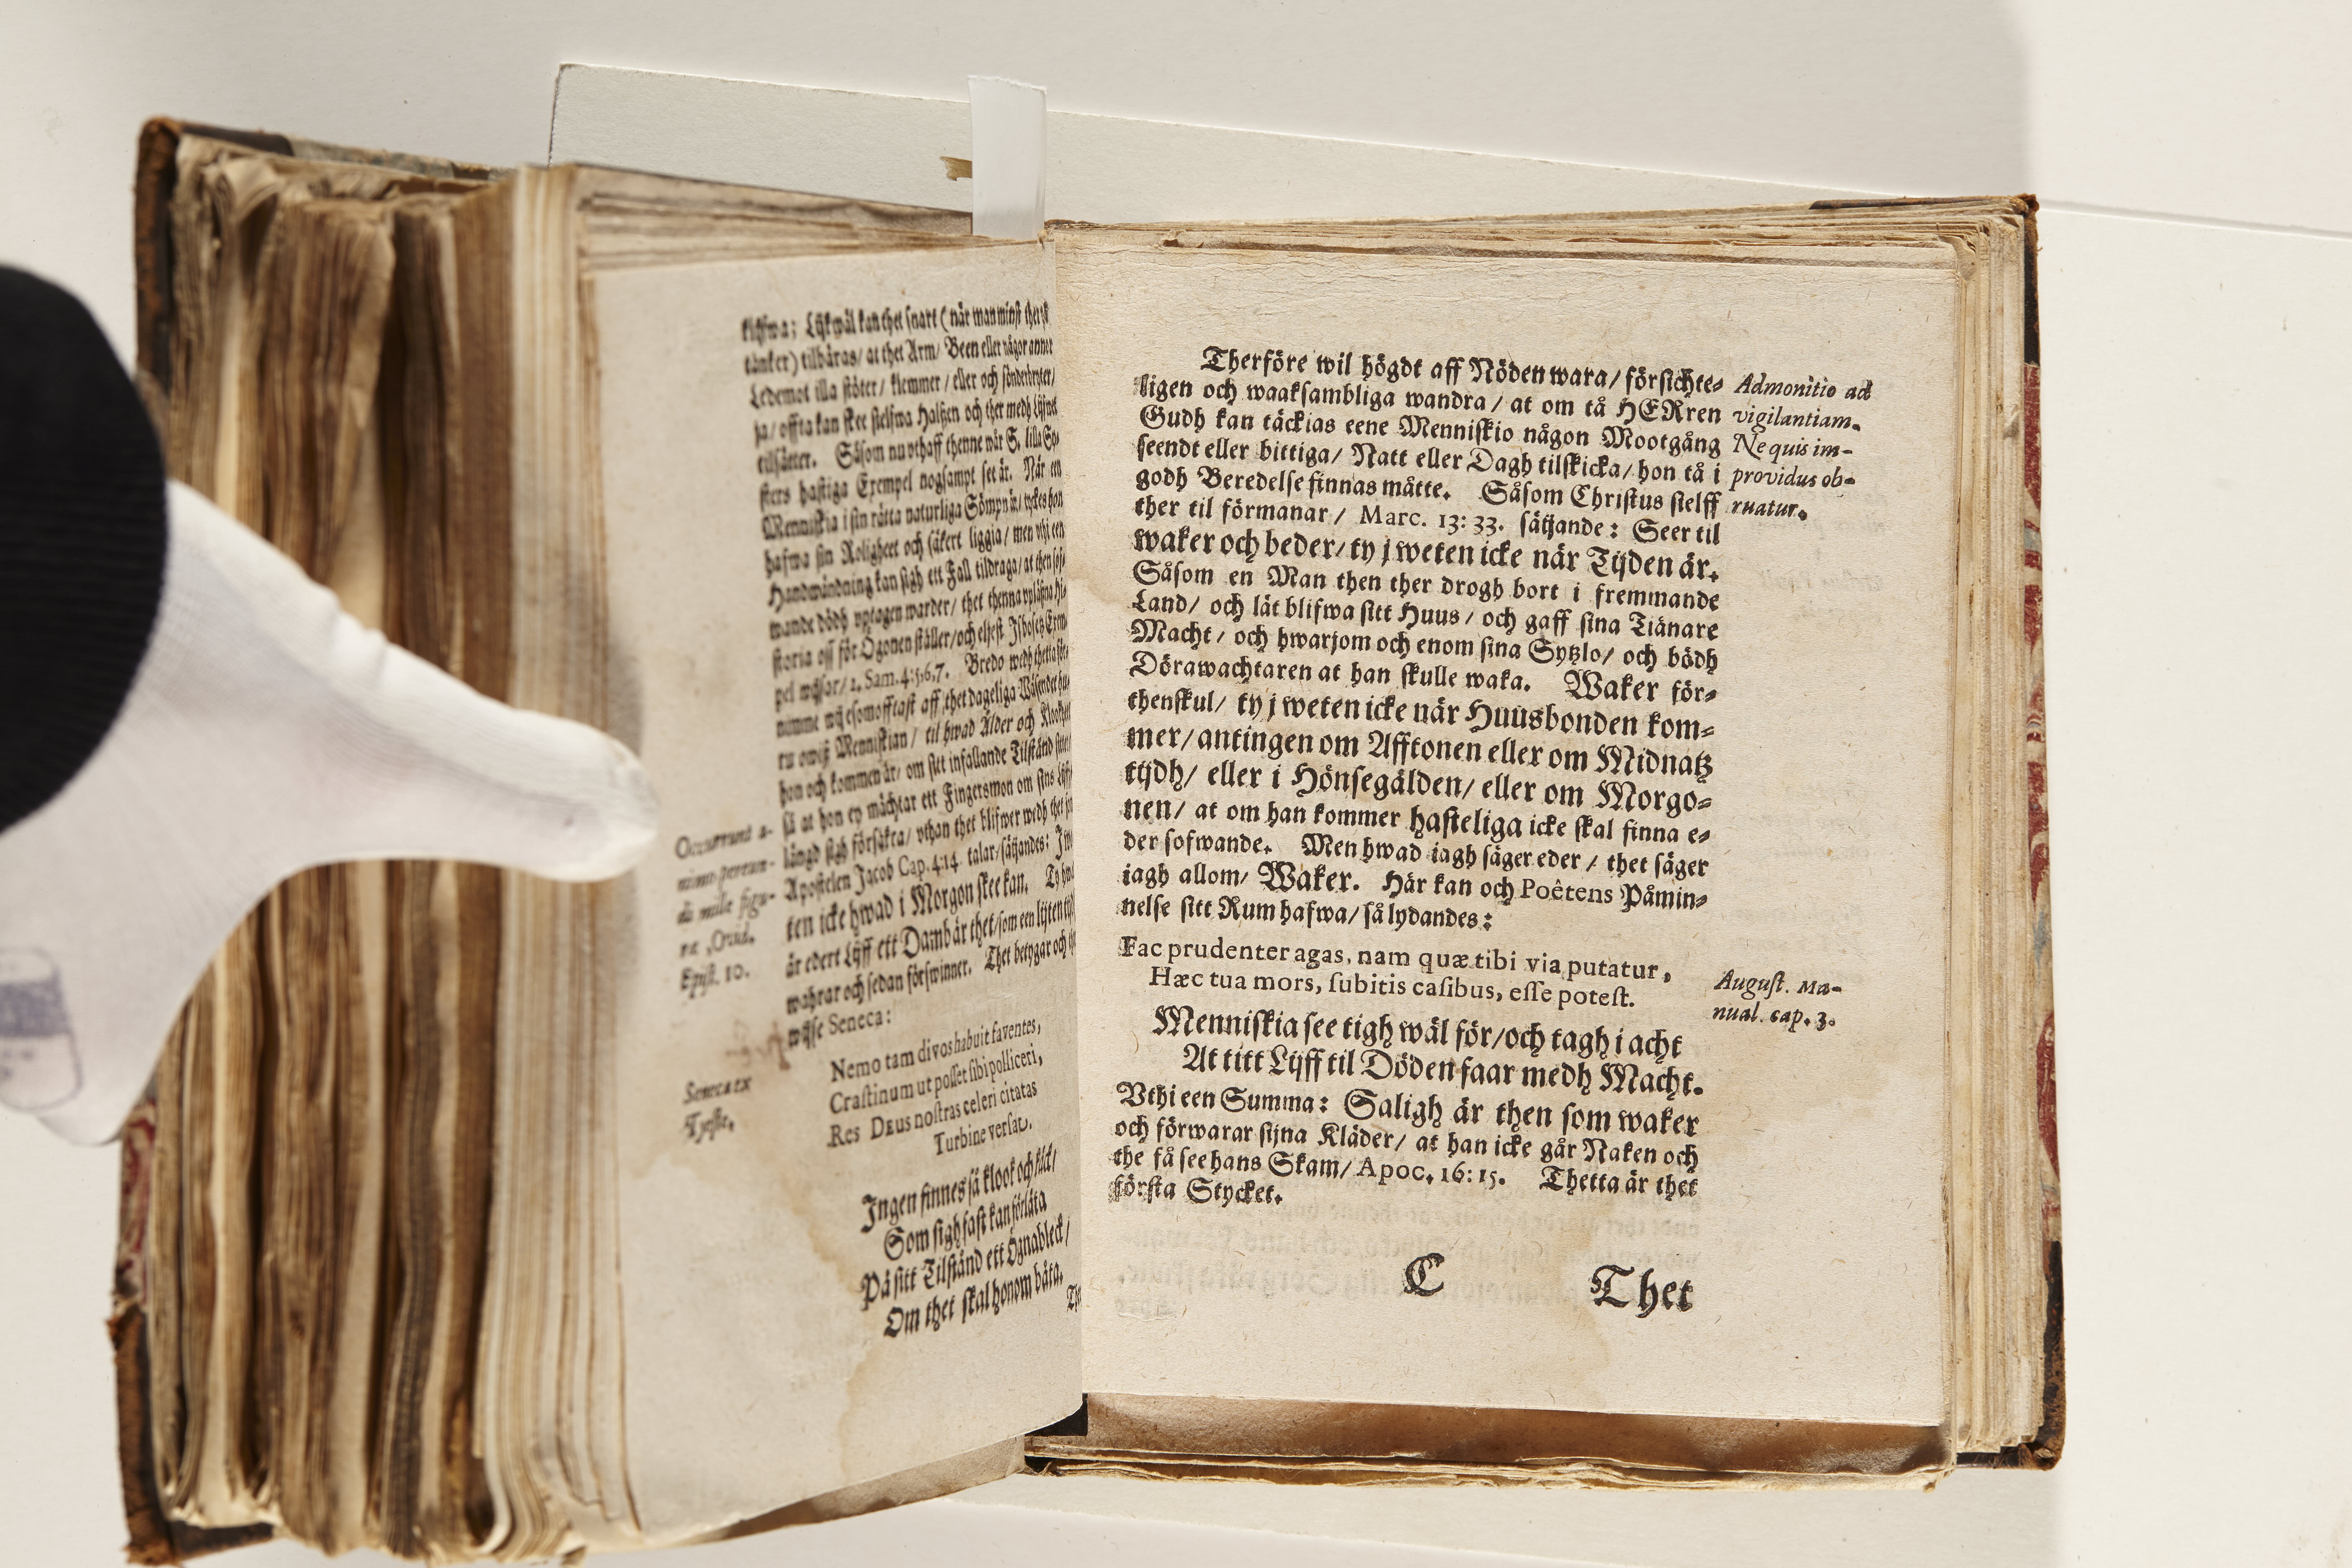 kihfwa; Lijkwäl kan thet snart (när man minst ther på
täncker) tilbäras/ at thet Arm/ Been eller någor annor
Ledemot illa stöter/ klemmer/ eller och sönderbryter/
ja/ offta kan skee sielfwa Halsen och ther medh Lijfwet
tilsätter. Såsom nu vthaff thenne wår S. lilla Sy-
sters hastiga Exempel nogsampt seet är. När en
Menniskia i sin rätta naturliga Sömpn är/ tyckes hon
hafwa sin Roligheet och säkert liggia/ men vthi een
Handwändning kan sigh ett Fall tildraga/ at then sof-
wande dödh vptagen warder/ thet thenna vpläsna Hi-
storia oss för Ögonen ställer/ och eliest Isboseths Exem-
pel wijsar/ 2. Sam. 4:5,6,7. Bredo wedh thetta för-
nimme wij esomofftast aff thet dageliga Wäsendet hu-
ru owiß Menniskian/ til hwad Ålder och Klookheet
hon och kommen är/ om sitt infallande Tilstånd
så at hon ey mächtar ett Fingersmon om sins Lijffs
längd sigh försäkra/ vthan thet blifwer wedh thet som
Apostelen Jacob Cap. 4:14. talar/ säijandes: I we-
ten icke hwad i Morgon skee kan. Ty hwad
är edert Lijff ett Damb är thet/ som een lijten tijdh
wahrar och sedan förswinner. Thet betygar och
wijse Seneca:
Nemo tam divos habuit faventes,
Crastinum ut posset sibi polliceri,
Res Deus nostras celeri citatas
Turbine versat.
Ingen finnes så klook och käck/
Som sigh fast kan förläta
På sitt Tilstånd ett Ögnableck/
Om thet skal honom båta.
Occurrunt a-
nimo pereun-
di mille figu-
ræ, Ovid.
Epist. 10.
Seneca ex
Tyeste.
Therföre wil högdt aff Nöden wara/ försichte-
ligen och waaksambliga wandra/ at om tå HERren
Gudh kan täckias eene Menniskio någon Mootgång
seendt eller bittiga/ Natt eller Dagh tilskicka/ hon tå i
godh Beredelse finnas måtte. Såsom Christus sielff
ther til förmanar/ Marc. 13:33. säijande: Seer til
waker och beder/ ty j weten icke när Tijden är.
Såsom en Man then ther drogh bort i fremmande
Land/ och lät blifwa sitt Huus/ och gaff sina Tiänare
Macht/ och hwarjom och enom sina Sytzlo/ och bödh
Dörawachtaren at han skulle waka. Waker för-
thenskul/ ty j weten icke när Huusbonden kom-
mer/ antingen om Afftonen eller om Midnatz
tijdh/ eller i Hönsegälden/ eller om Morgo-
nen/ at om han kommer hasteliga icke skal finna e-
der sofwande. Men hwad iagh säger eder/ thet säger
iagh allom/ Waker. Här kan och Poêtens Påmin-
nelse sitt Rum hafwa/ så lydandes:
Fac prudenter agas, nam quæ tibi via putatur,
Hæc tua mors, subitis casibus, esse potest.
Menniskia see tigh wäl för/ och tagh i acht
At titt Lijff til Döden faar medh Macht.
Vthi een Summa: Saligh är then som waker
och förwarar sijna Kläder/ at han icke går Naken och
the få see hans Skam/ Apoc. 16:15. Thetta är thet
första Stycket.
C Thet
Admonitio ad
vigilantiam.
Ne quis im-
providus ob-
ruatur.
August. Ma-
nual. cap. 3.